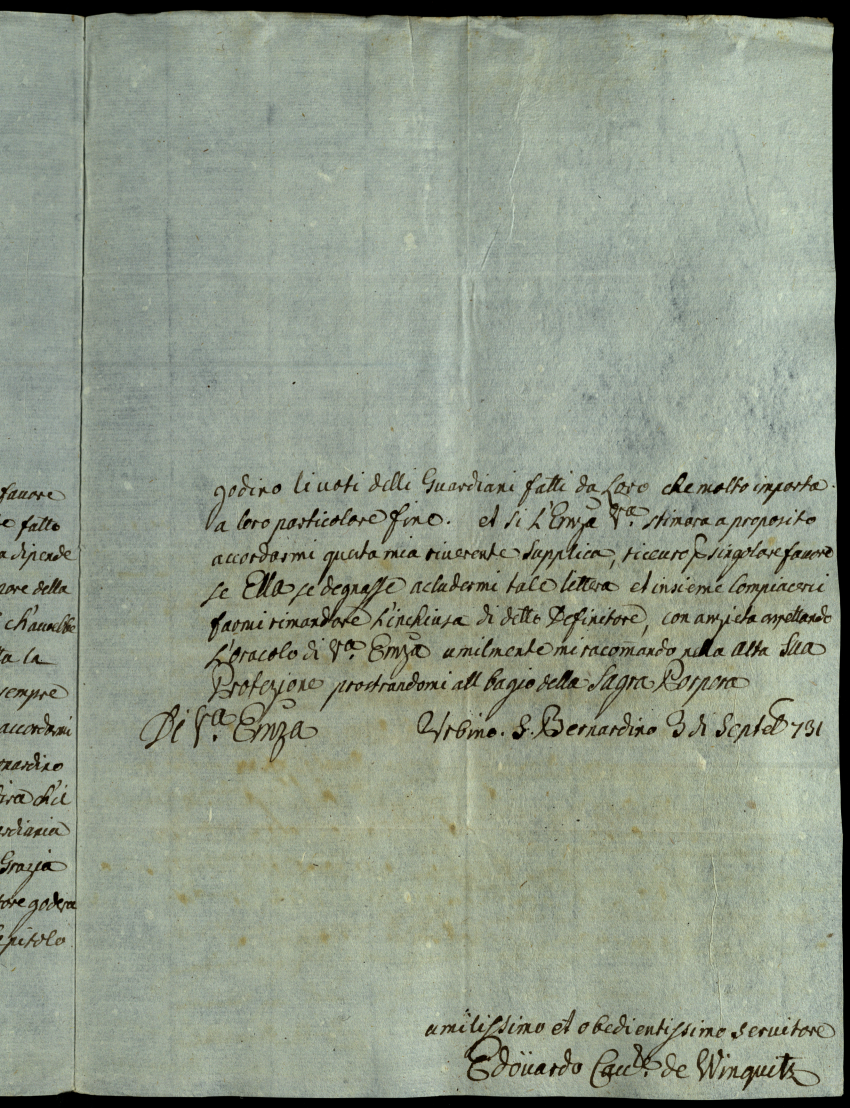 favore
fatto
dipende
della
ch'
la
sempre
accordarmi
Grazia
godera
godino li voti delli Guardiani fatti da Loro che molto importa
a loro particolare fine. et si L'Emza Va. stimara a proposito
accordarmi questa mia riverente Supplica, singolare favore
se Ella se degnasse acludermi tale lettera et insieme compiacersi
farmi rimandare L'inchiusa di detto Definitore, con anzieta aspettando
L'oracolo di Va. Emza umilmente mi racomando nella alta Sua
Protezione prostrandomi all bagio della Sagra Porpora
Di Va. Emza Urbino. S. Bernardino 3 di Septeb 731
umilissimo et obedientissimo servitore
Edöuardo Cavre. de Winquitz